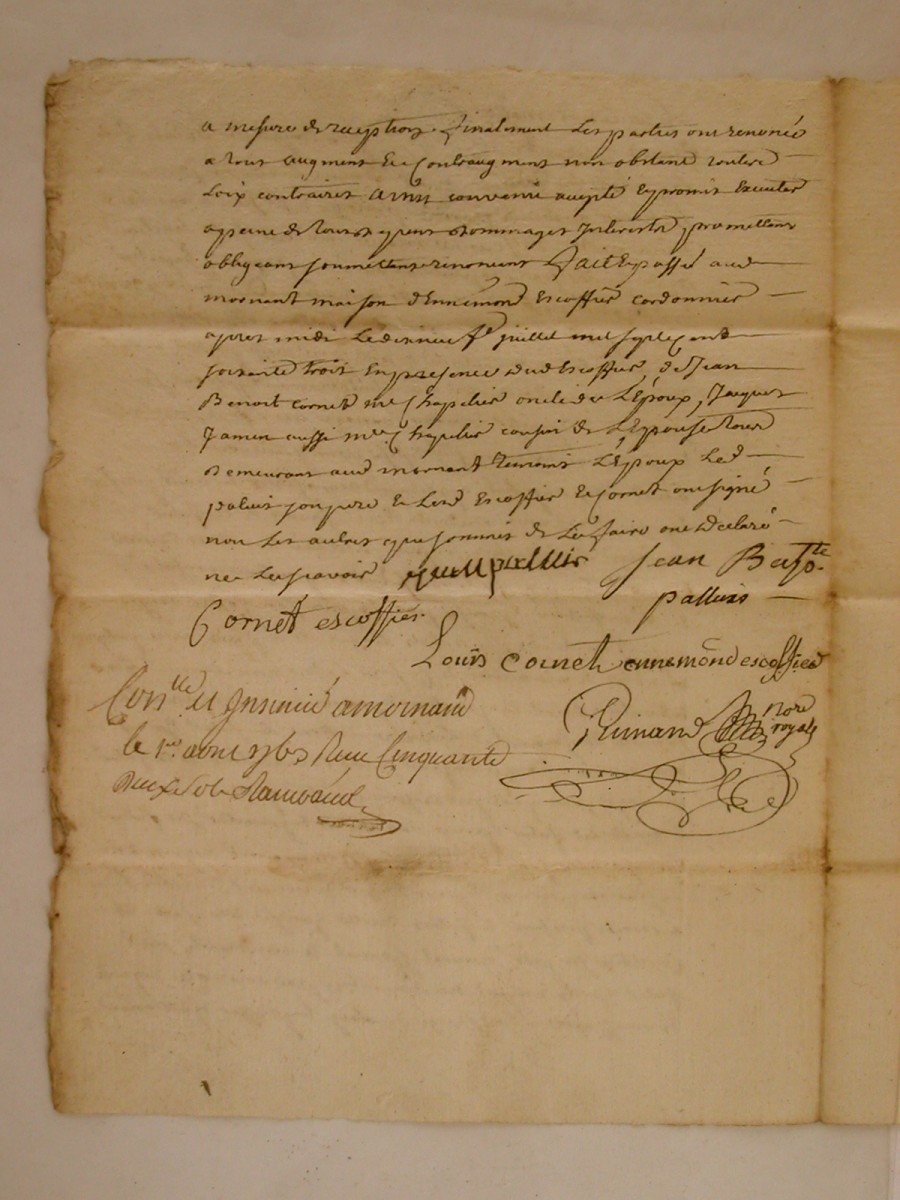 a mesure de reception finalement les parties ont renoncé
a tout augment et contraugment non obstant toutes
Loix contraires ainsi convenu accepté et promis executer
a peine de tous depens dommages interets, promettant
obligeant soumettant renoncant fait et passé aud
mornant maison d'Ennemond Escoffier cordonnier
apres midi le juillet mil sept cent
soixante trois En presence dud Escoffier, de Jean
Benoit Cornet me Chapelier oncle de L'Epoux, Jacques
Jamen aussi me Chapelier cousin de L'Epouse tous
demeurant aud mornant temoins L'Epoux led
paluis son pere et lesd Escoffier et Cornet ont signé
non les autres qui sommés de le faire ont declaré
ne le sçavoir Jean Bapte
palluis
Cornet escoffier
Louis Cornet annemond escoffier
Conlle et insinué a mornand
le 1er aout 1763 Reçu Cinquante
deux sols
nore
royal